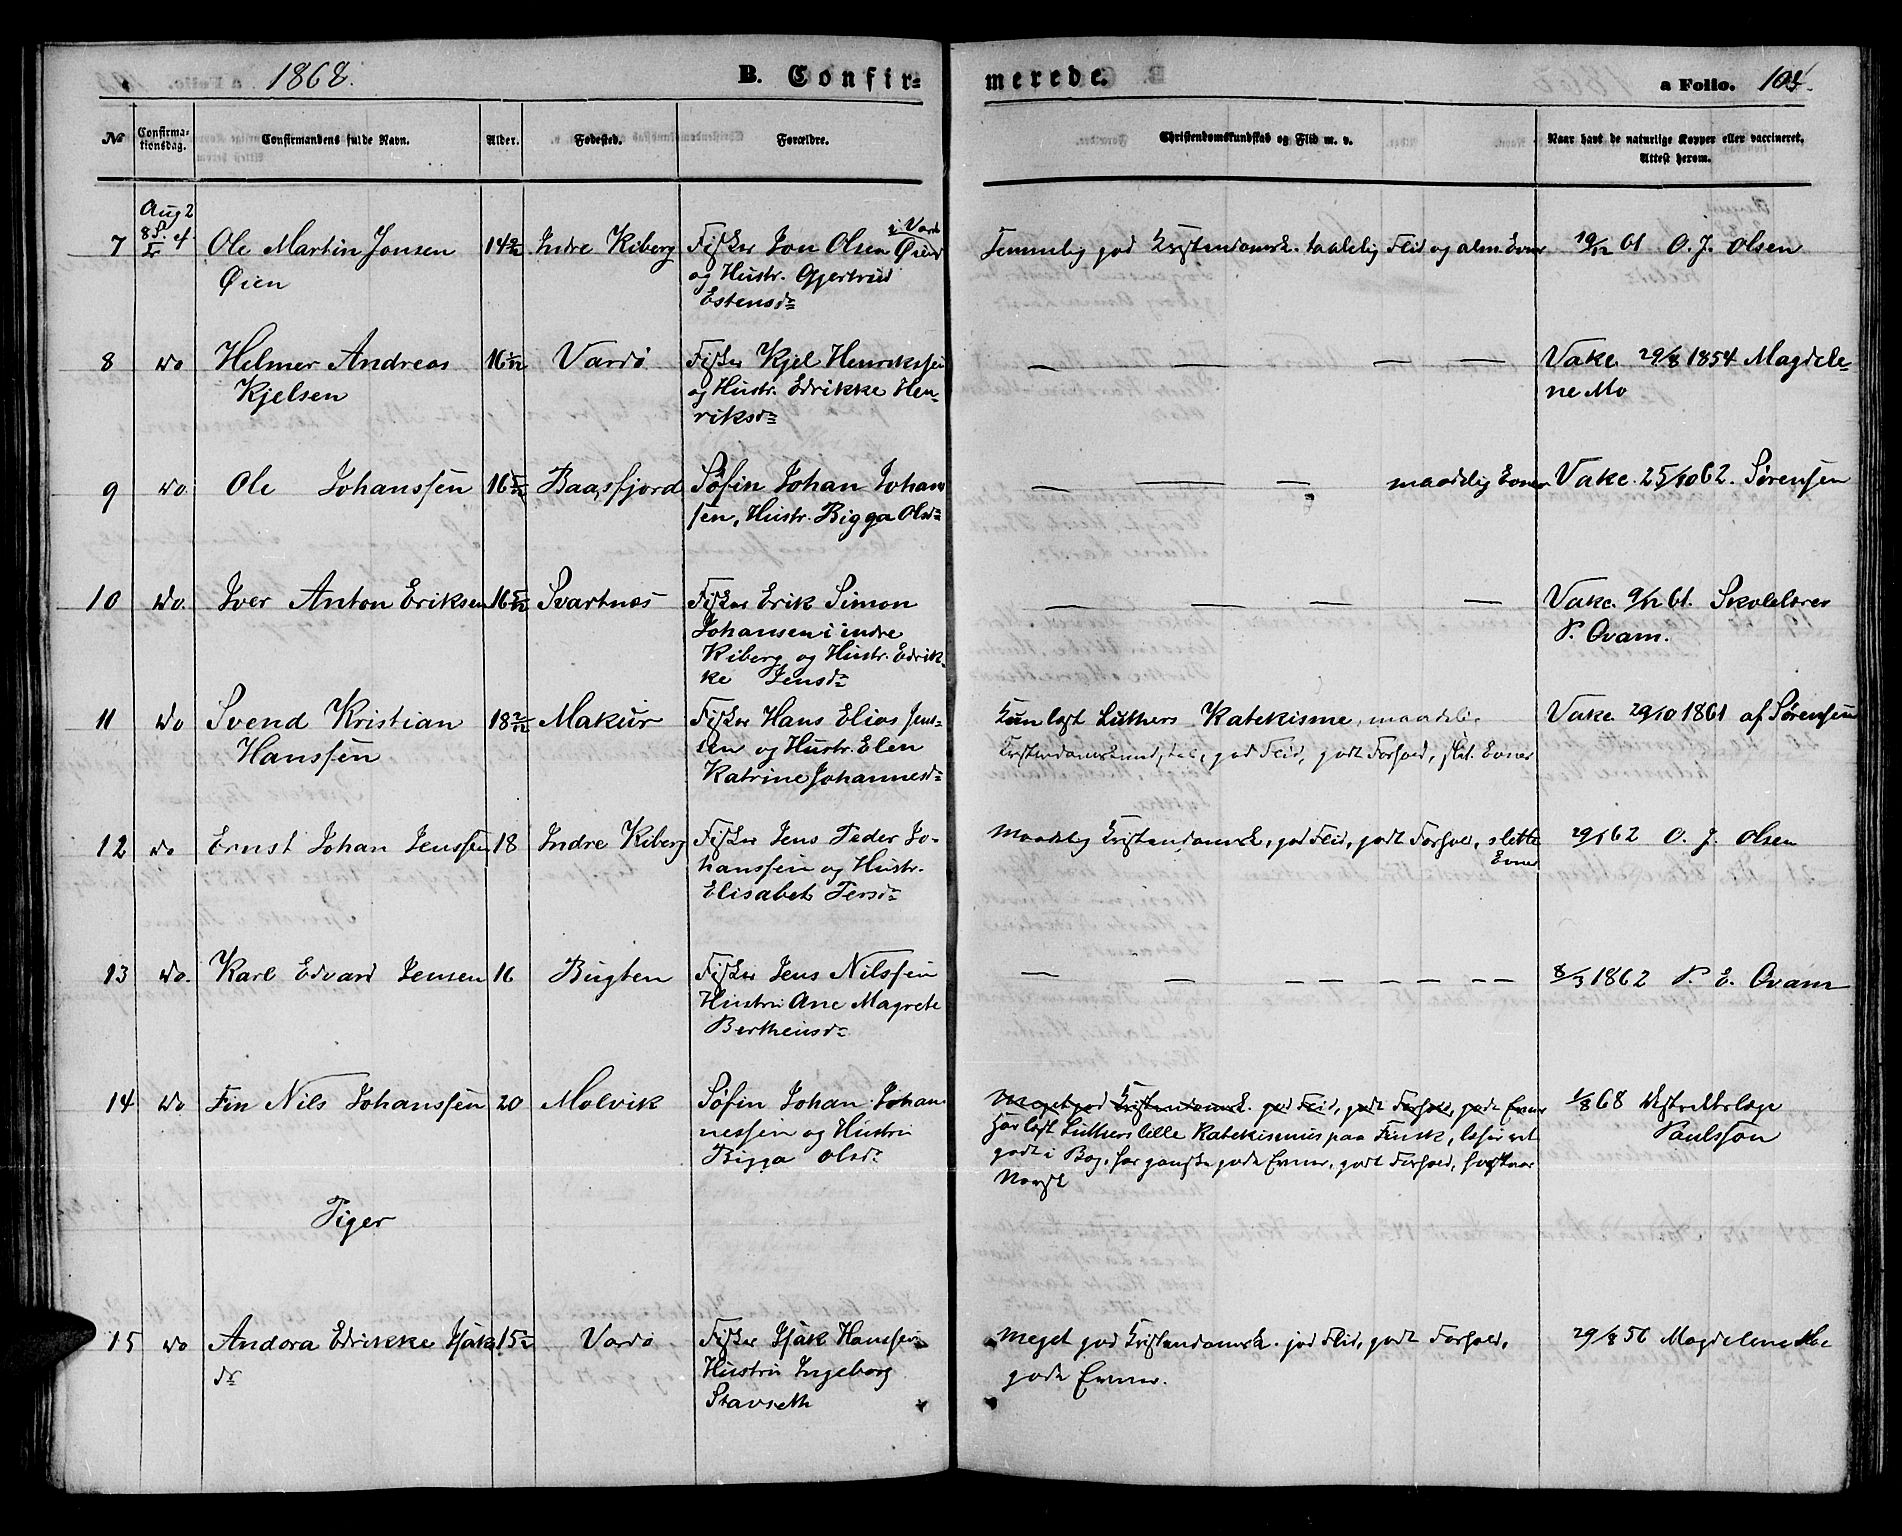 1868.
B. Confir=
merede.
a Folio. 104.
No
Confirma-
tionsdag.
Confirmandens fulde Navn.
Alder.
Fødested.
Forældre.
Christendomskundskab og Flid m. v.
Naar havt de naturlige Kopper eller vaccineret.
Attest herom.
Aug 2
7 Ole Martin Jonsen
Øien
14 Indre Kiberg
Fisker Jon Olsen Øien i Vard
og Hustr. Gjertrud
Estensdr
Temmelig god Kristendomsk. taalelig Flid og alm. Evner
19/12 61 O. J. Olsen
8 do Helmer Andreas
Kjelsen
16 Vardö
Fisker Kjel Henrikssen
og Hustr. Edrikke Hen-
riksdr
— — — — —
Vakc. 29/8 1854 Magdele-
ne Mo
9 do Ole Johanssen 16 Baasfjord
Søfin Johan Johan
sen, Hustr. Bigga Olsdr
— — — maadelig Evner
Vakc. 25/10 62. Sørensen
10 do. Iver Anton Eriksen 16 Svartnæs
Fisker Erik Simon
Johansen i indre
Kiberg og Hustr. Edrik-
ke Jensdr
— — — —
Vakc. 9/12 61. Skolelærer
P. Qvam.
11 do Svend Kristian
Hanssen
18 2/12 Makur
Fisker Hans Elias Jens-
sen og Hustr. Elen
Katrine Johannesdr
Kun læst Luthers Katekisme, maadelig
Kristendomskundskab, god Flid, godt Forhold, slet. Evner
Vakc. 29/10 1861 af Sørensen
12 do Ernst Johan Jenssen 18 Indre Kiberg
Fisker Jens Peder Jo-
hanssen og Hustr.
Elisabet Persdr
Maadelig Kristendomsk, god Flid, godt Forhold, slette
Evner
29/1 62 O. J. Olsen
13 do. Karl Edvard Jensen 16 Bugten
Fisker Jens Nilssen
Hustru Ane Magrete
Bertheusdr
— — — — — — —
8/3 1862 P. E. Qvam
14 do Fin Nils Johanssen 20 Molvik
Søfin Johan Johan-
nessen og Hustru
Bigga Olsdr
Meget god Kristendomsk. god Flid, godt Forhold, gode Evner
Har læst Luthers lille Katekismus paa Finsk, læser ret
godt i Bog, har ganske gode Evner, godt Forhold, forstaar
Norsk
1/8 68 Distriktslæge
Paulsson
Piger
15 do Andora Edrikke Isaks
dr
15 Vardø
Fisker Isak Hanssen
Hustru Ingeborg
Stavseth
Meget god Kristendomsk. god Flid, godt Forhold,
gode Evner.
29/8 56 Magdelene Mo